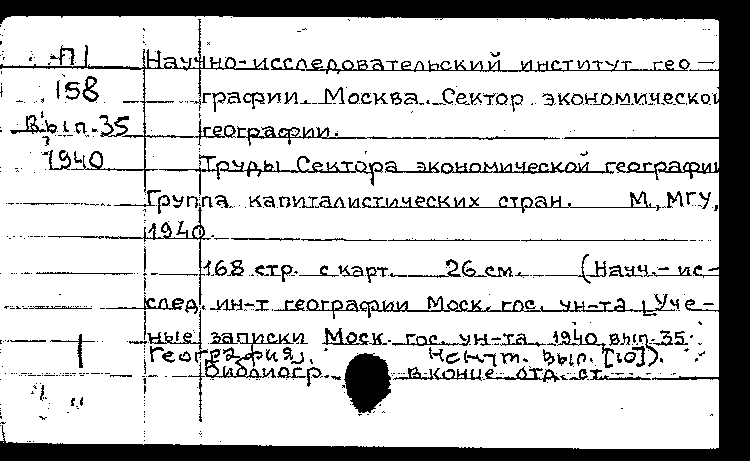 П1 Научно-исследовательский институт гео-
158 графии. Москва. Сектор экономической
Вып.35 географии.
1940 Труды Сектора экономической географии
Группа капиталистических стран. М., МГУ,
1940.
168 стр. с карт. 26 см. (Науч.-ис-
след. ин-т географии Моск. гос. ун-та. Уче-
ные записки Моск. гос. ун-та, 1940, вып.35.
География. вып. [10]).
Библиогр. в конце отд. ст.